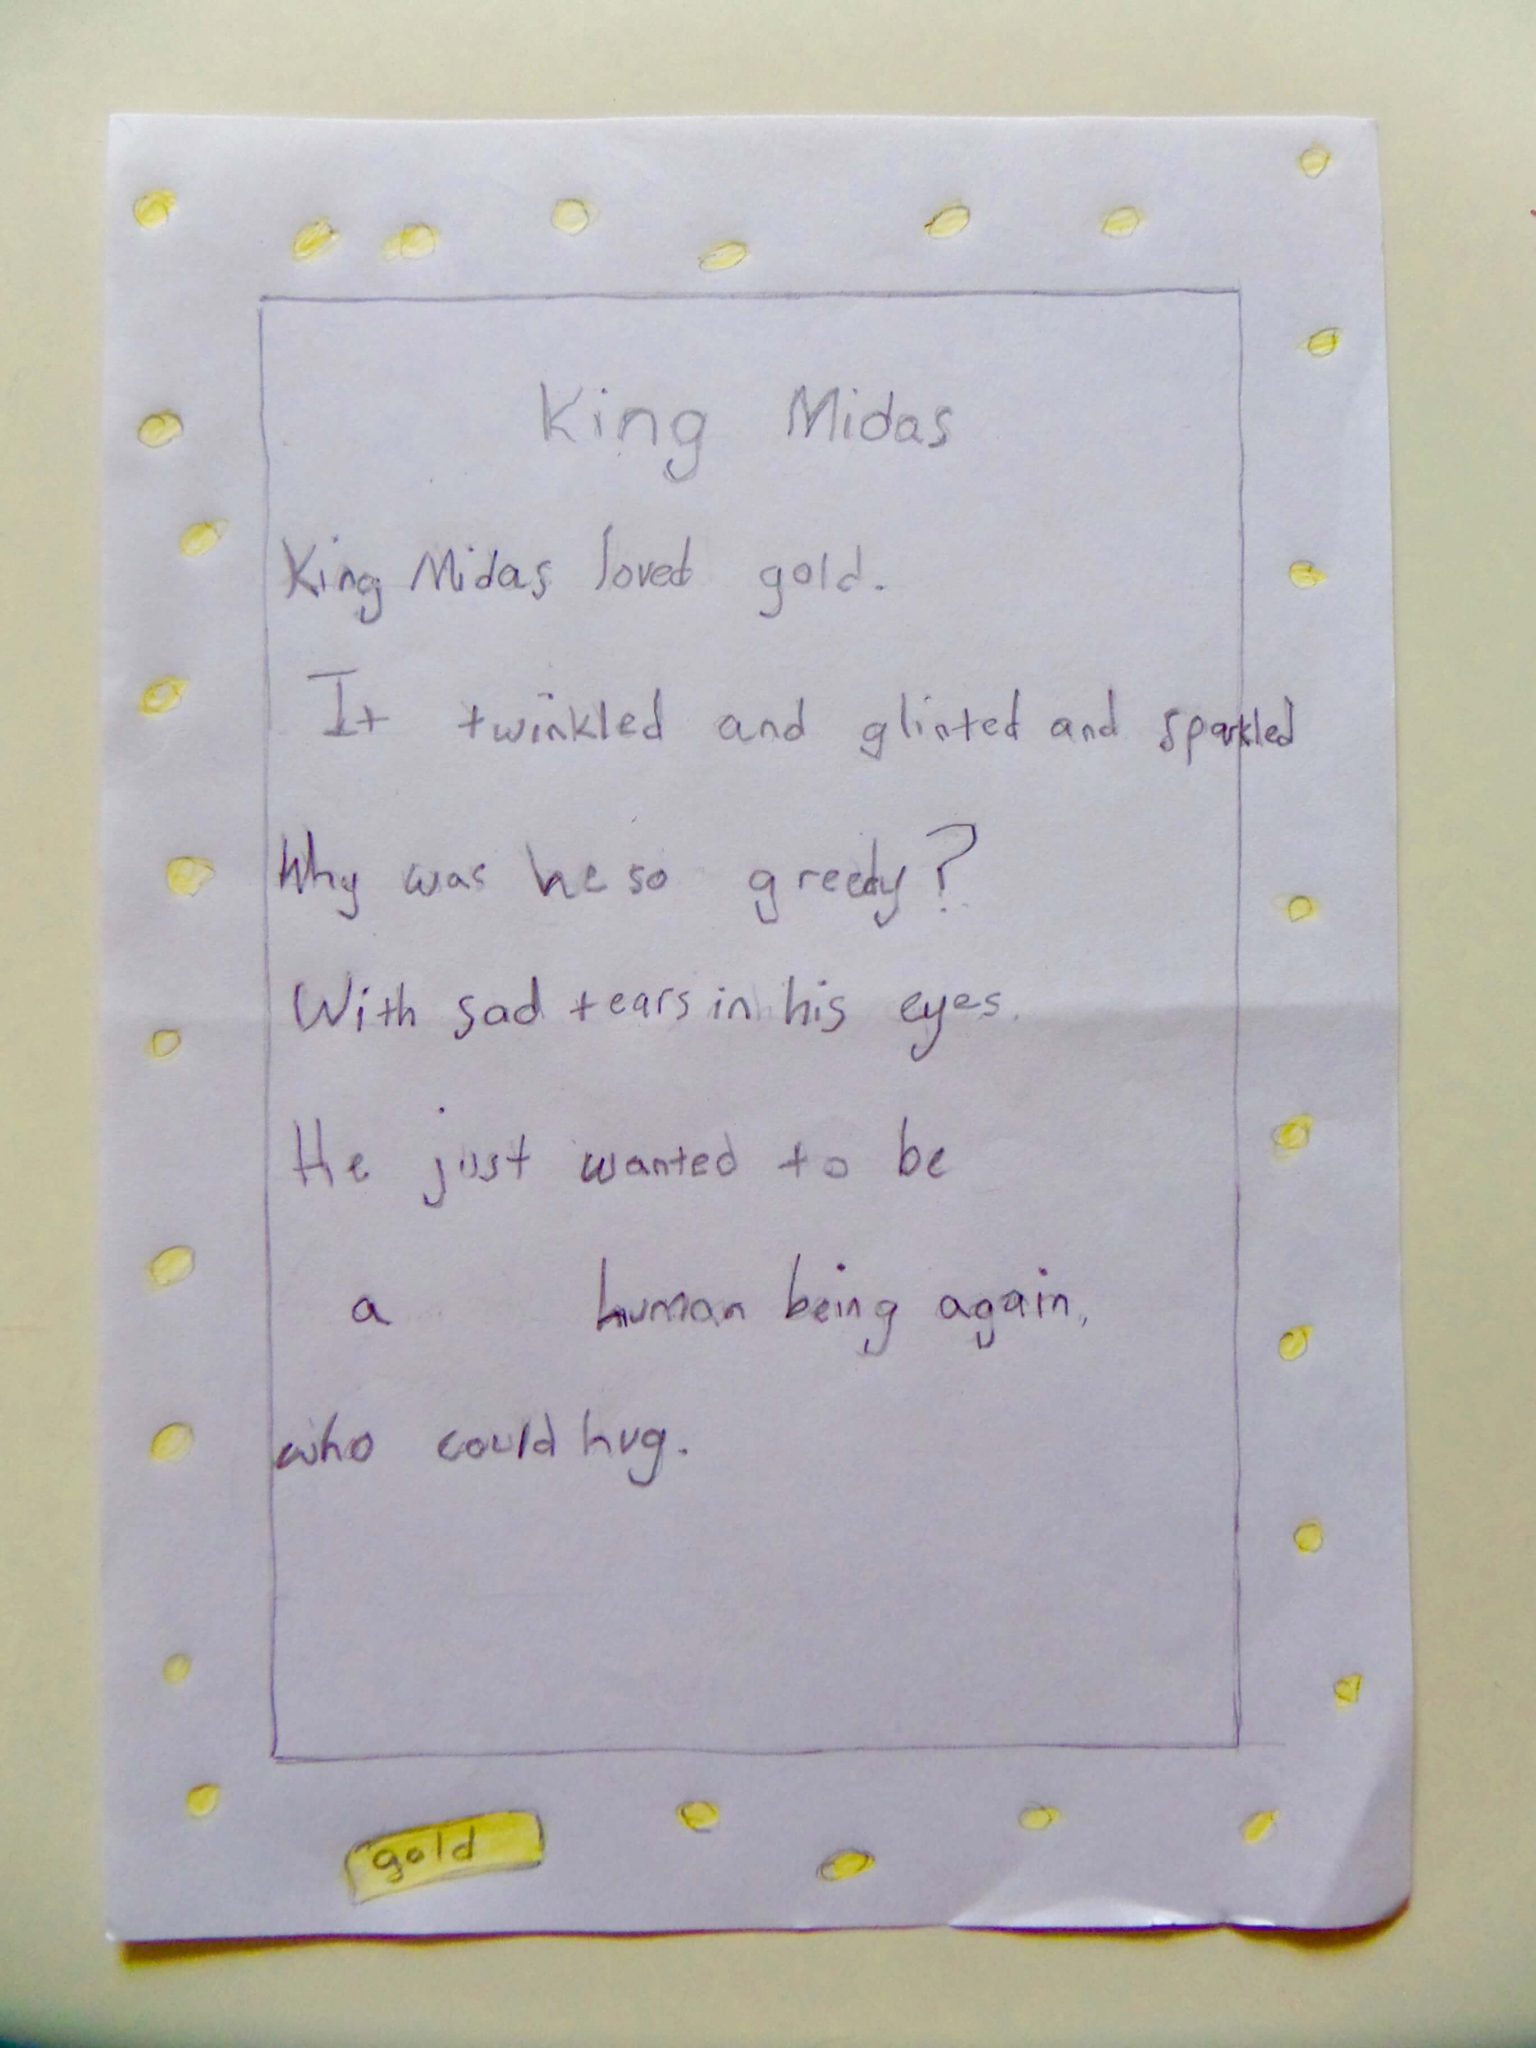 King Midas
King Midas loved gold.
It twinkled and glinted and sparkled
Why was he so greedy?
With sad tears in his eyes.
He just wanted to be
a human being again,
who could hug.
gold